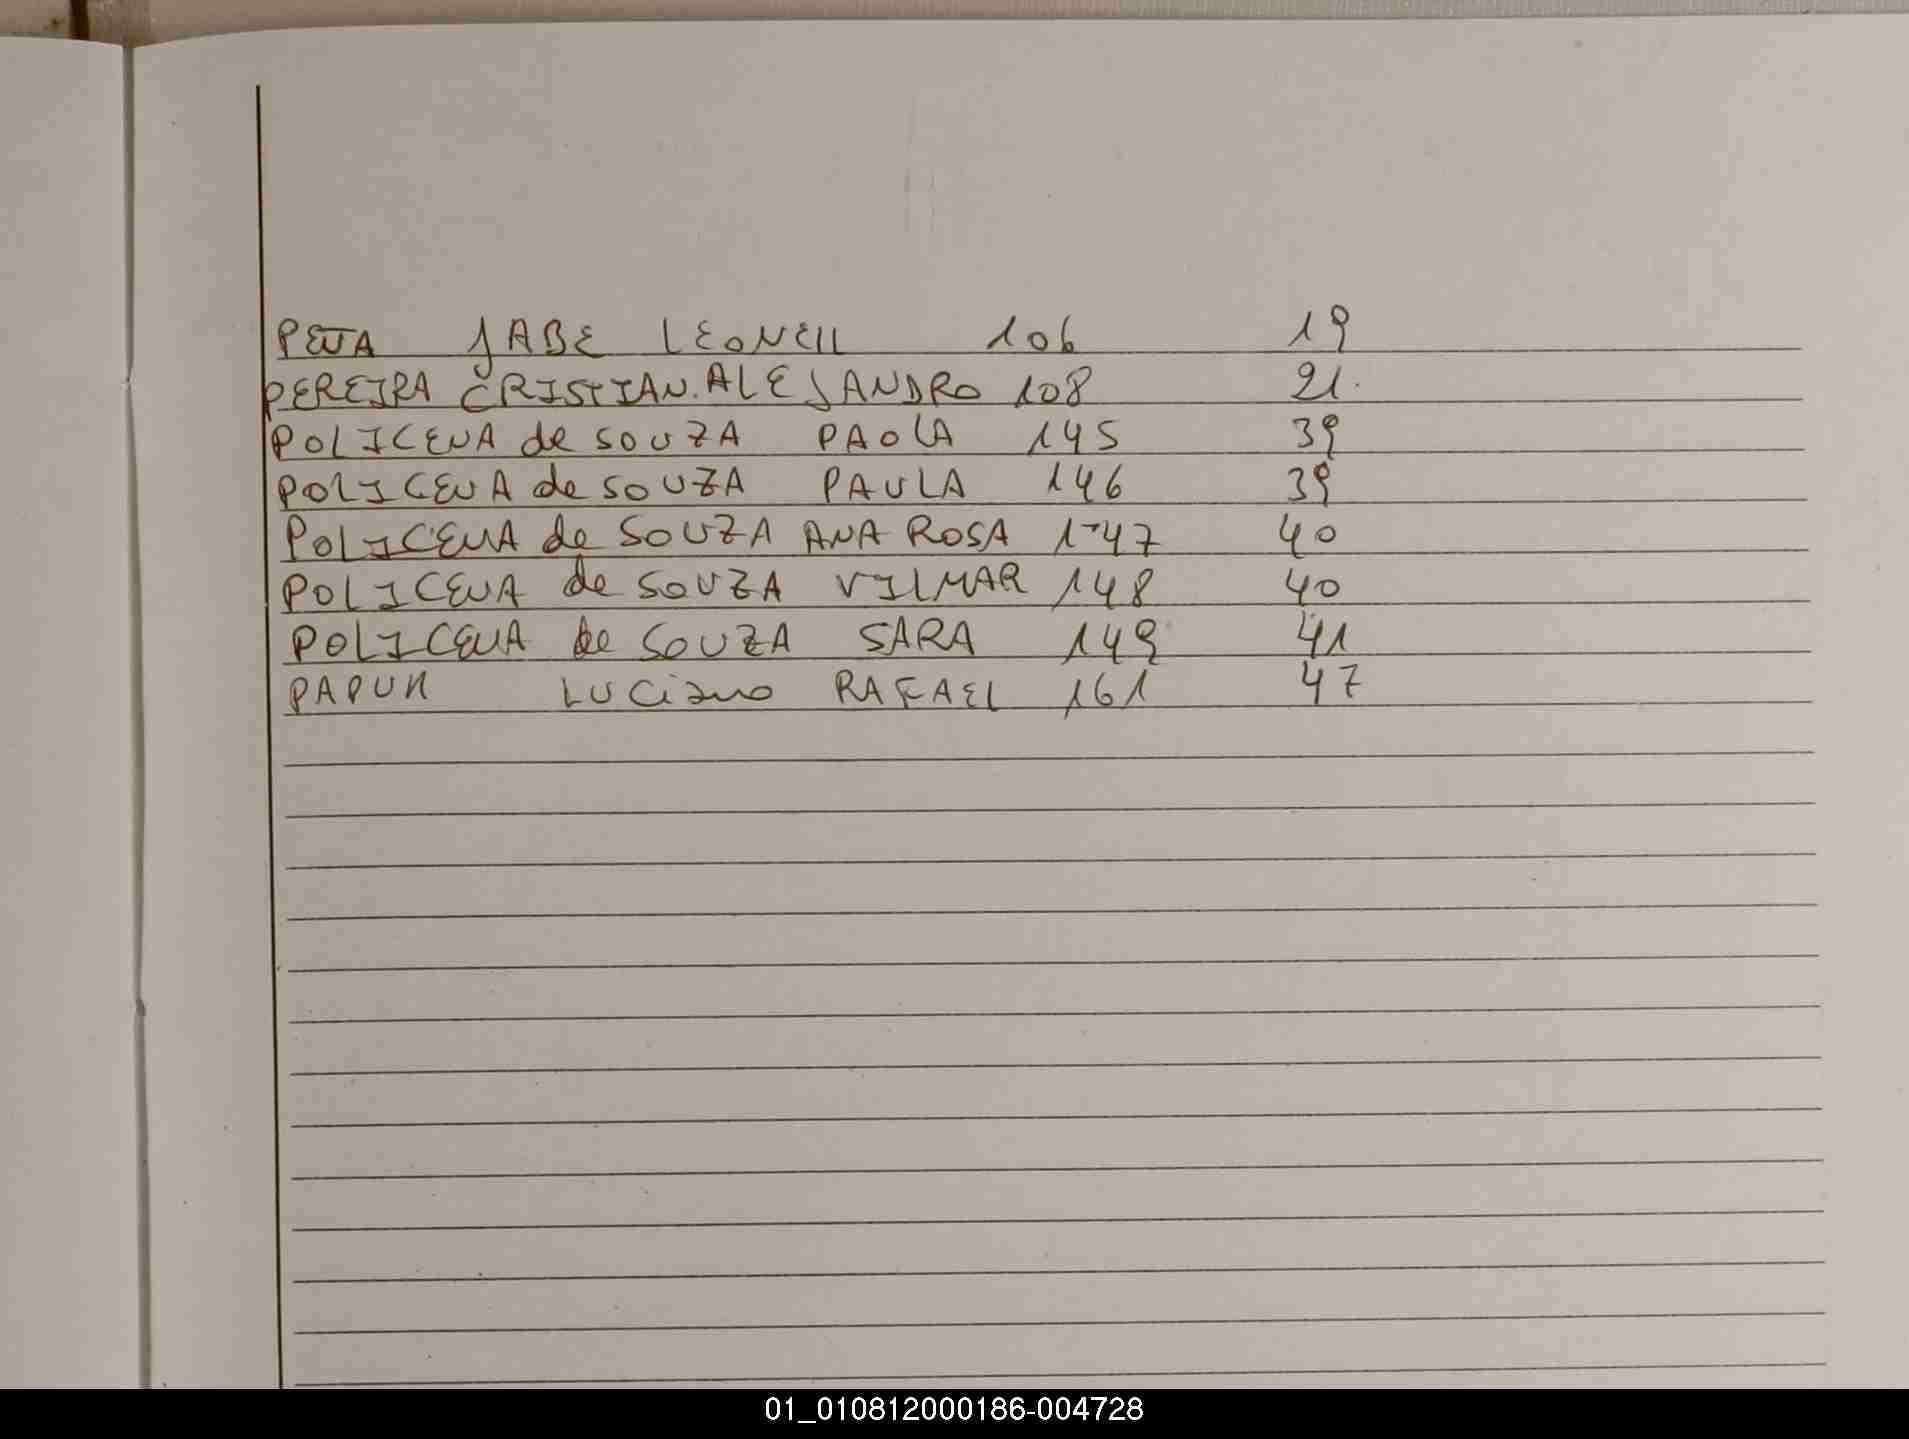 PEÑA JABE LEONEL 106 19
PEREIRA CRISTIAN. ALEJANDRO 108 21.
POLICENA de SOUZA PAOLA 145 39
POLICENA de SOUZA PAULA 146 39
POLICENA de SOUZA ANA ROSA 147 40
POLICENA de SOUZA VILMAR 148 40
POLICENA de SOUZA SARA 149 41
LUCiano RAFAEL 161 47
01_010812000186-004728